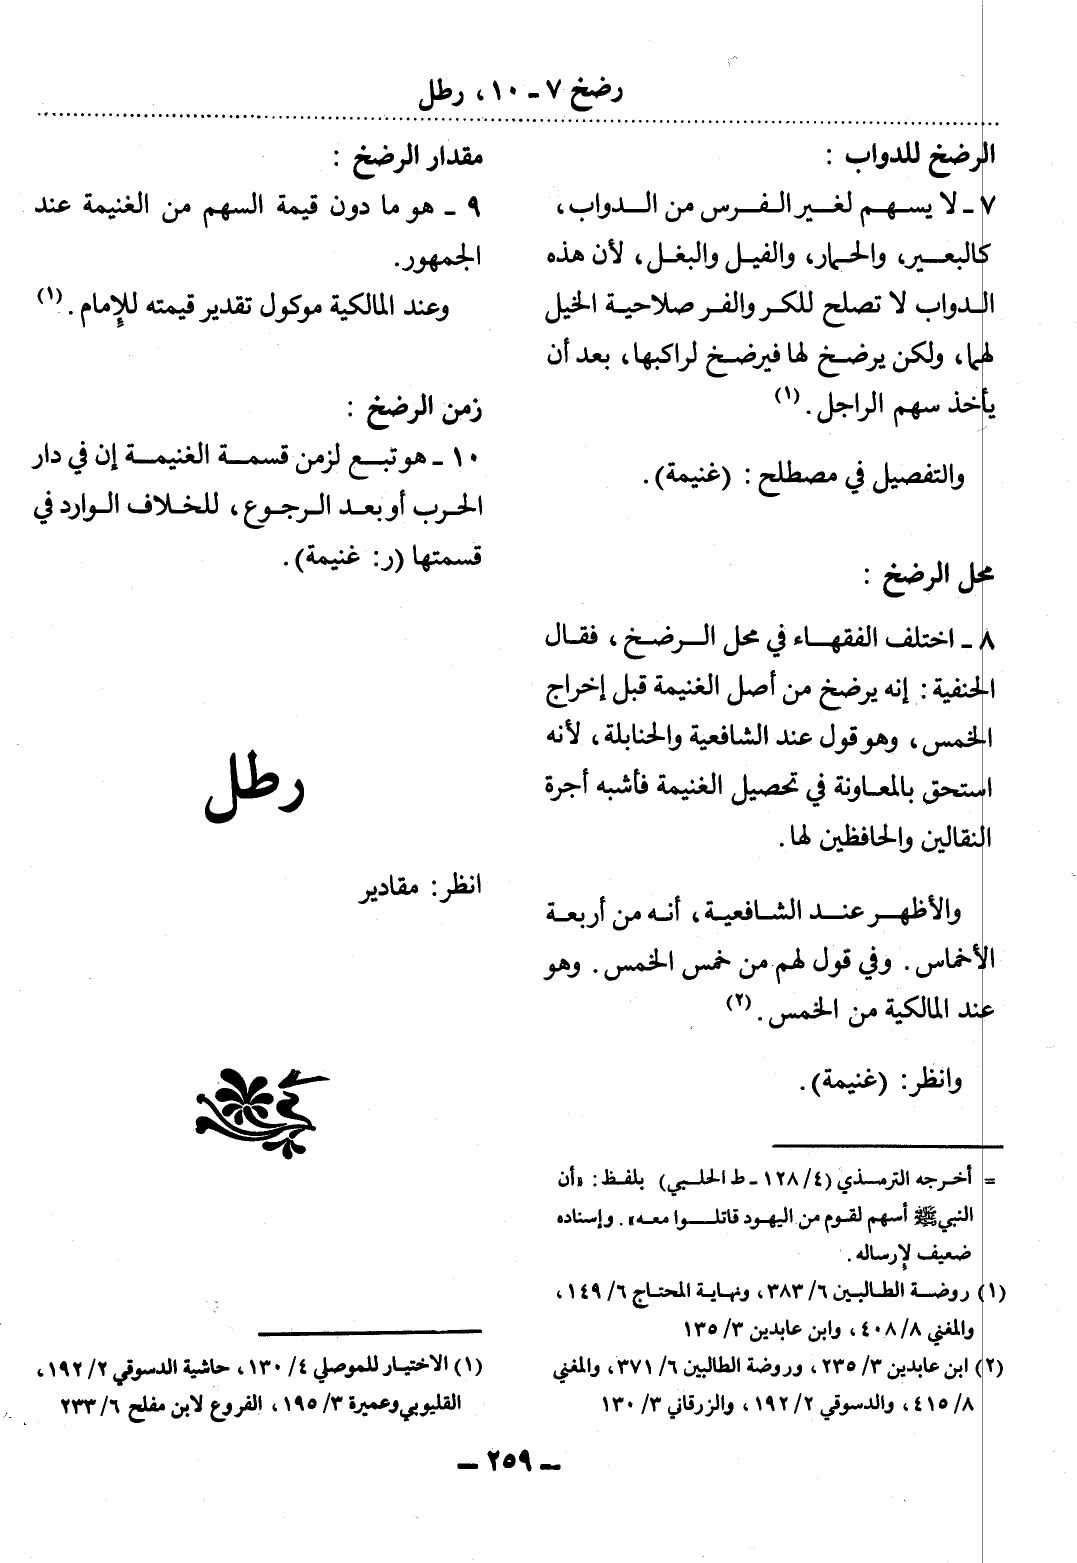 رضخ ٧ ـ ١٠، رطل
الرضخ للدواب :
٧ ـ لا يسهم لغير الفرس من الدواب،
كالبعير، والحمار، والفيل والبغل، لأن هذه
الدواب لا تصلح للكر والفر صلاحية الخيل
لهما، ولكن يرضخ لها فيرضخ لراكبها، بعد أن
يأخذ سهم الراجل. (١)
والتفصيل في مصطلح : (غنيمة).
محل الرضخ :
٨ ـ اختلف الفقهاء في محل الرضخ، فقال
الحنفية : إنه يرضخ من أصل الغنيمة قبل إخراج
الخمس، وهو قول عند الشافعية والحنابلة، لأنه
استحق بالمعاونة في تحصيل الغنيمة فأشبه أجرة
النقالين والحافظين لها.
والأظهر عند الشافعية، أنه من أربعة
الأخماس. وفي قول لهم من خمس الخمس. وهو
عند المالكية من الخمس. (٢)
وانظر : (غنيمة).
= أخرجه الترمذي (٤/ ١٢٨ ـ ط الحلبي) بلفظ : «أن
النبي ﷺ أسهم لقوم من اليهود قاتلوا معه». وإسناده
ضعيف لإرساله.
(١) روضة الطالبين ٦/ ٣٨٣، ونهاية المحتاج ٦/ ١٤٩،
والمغني ٨/ ٤٠٨، وابن عابدين ٣/ ١٣٥
(٢) ابن عابدين ٣/ ٢٣٥، وروضة الطالبين ٦/ ٣٧١، والمغني
٨/ ٤١٥، والدسوقي ٢/ ١٩٢، والزرقاني ٣/ ١٣٠
مقدار الرضخ :
٩ ـ هو ما دون قيمة السهم من الغنيمة عند
الجمهور.
وعند المالكية موكول تقدير قيمته للإمام. (١)
زمن الرضخ :
١٠ ـ هو تبع لزمن قسمة الغنيمة إن في دار
الحرب أو بعد الرجوع، للخلاف الوارد في
قسمتها (ر: غنيمة).
رطل
انظر : مقادير
(١) الاختيار للموصلي ٤/ ١٣٠، حاشية الدسوقي ٢/ ١٩٢،
القليوبي وعميرة ٣/ ١٩٥، الفروع لابن مفلح ٦/ ٢٣٣
ـ ٢٥٩ ـ